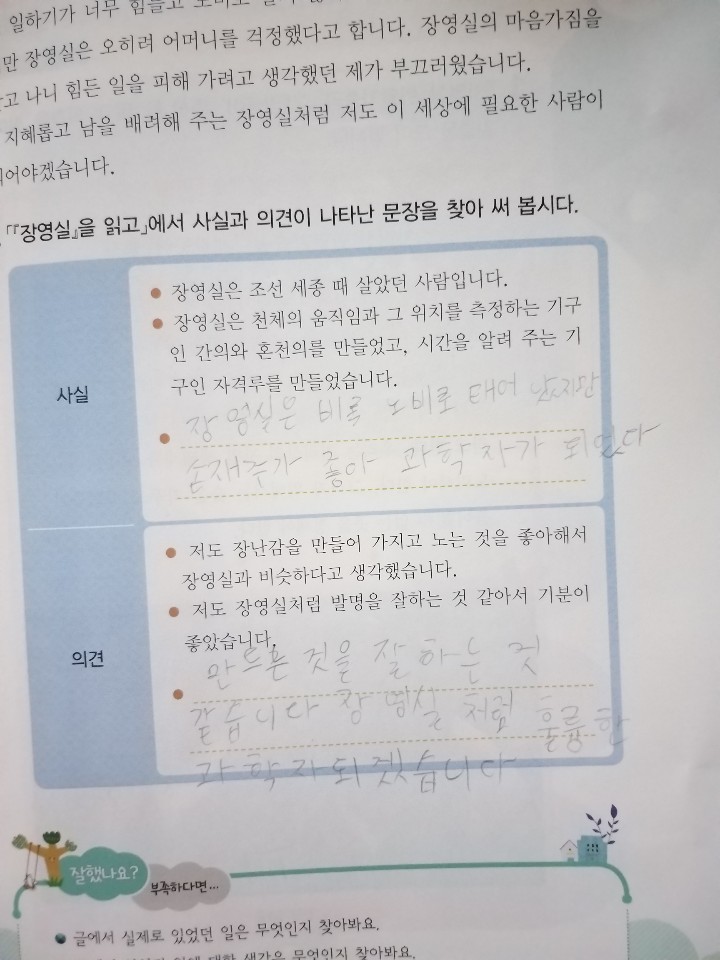 일하기가 너무 힘들고
만 장영실은 오히려 어머니를 걱정했다고 합니다. 장영실의 마음가짐을
고 나니 힘든 일을 피해 가려고 생각했던 제가 부끄러웠습니다.
지혜롭고 남을 배려해 주는 장영실처럼 저도 이 세상에 필요한 사람이
되어야겠습니다.
「『장영실』을 읽고」에서 사실과 의견이 나타난 문장을 찾아 써 봅시다.
사실
• 장영실은 조선 세종 때 살았던 사람입니다.
• 장영실은 천체의 움직임과 그 위치를 측정하는 기구
인 간의와 혼천의를 만들었고, 시간을 알려 주는 기
구인 자격루를 만들었습니다.
• 장영실은 비록 노비로 태어 났지만
손재주가 좋아 과학자가 되었다
의견
• 저도 장난감을 만들어 가지고 노는 것을 좋아해서
장영실과 비슷하다고 생각했습니다.
• 저도 장영실처럼 발명을 잘하는 것 같아서 기분이
좋았습니다.
• 만드는 것을 잘 하는 것
같습니다 장영실 처럼 훌륭한
과학자되겠습니다
잘했나요?
부족하다면…
글에서 실제로 있었던 일은 무엇인지 찾아봐요.
대한 생각은 무엇인지 찾아봐요.